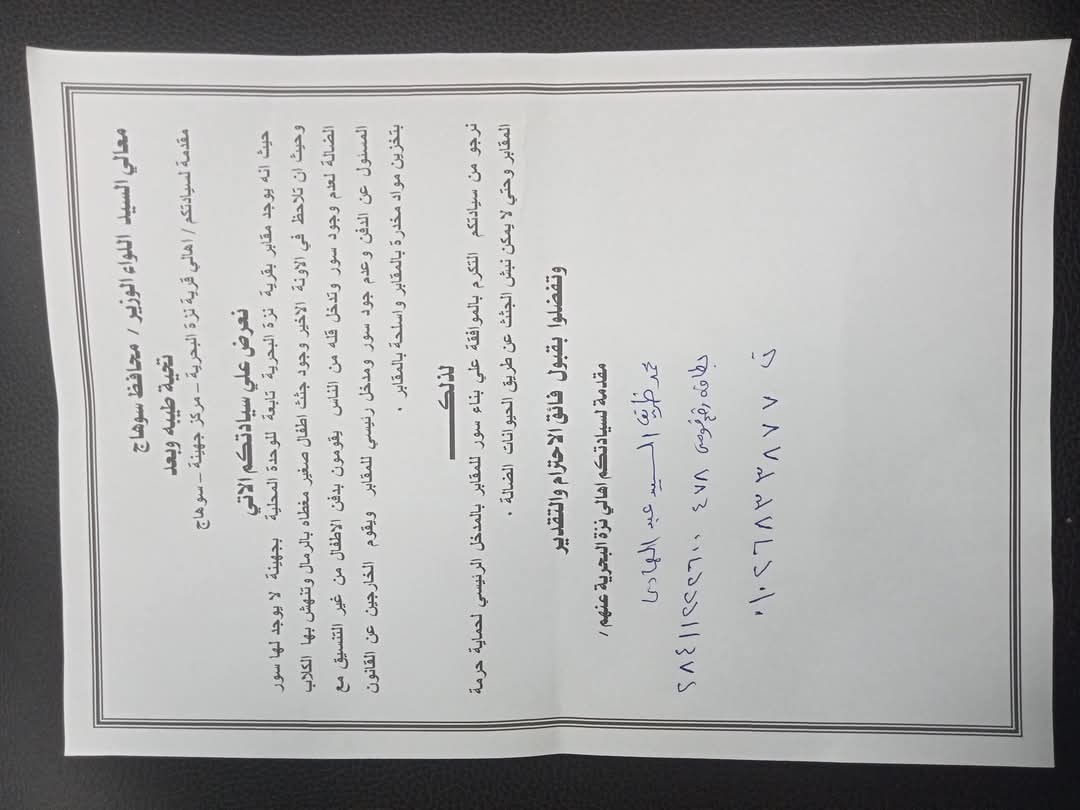 معالي السيد اللواء الوزير / محافظ سوهاج
تحية طيبه وبعد
مقدمة لسيادتكم / اهالي قرية نزة البحرية – مركز جهينة – سوهاج
نعرض علي سيادتكم الاتي
حيث انه يوجد مقابر بقرية نزة البحرية تابعة للوحدة المحلية بجهينة لا يوجد لها سور
وحيث ان تلاحظ في الاونة الاخير وجود جثث اطفال صغير مغطاه بالرمال وتنهش بها الكلاب
الضالة لعدم وجود سور وتدخل قله من الناس يقومون بدفن الاطفال من غير التنسيق مع
المسئول عن الدفن وعدم جود سور ومدخل رئيسي للمقابر ويقوم الخارجين عن القانون
بتخزين مواد مخدرة بالمقابر واسلحة بالمقابر .
لذلك
نرجو من سيادتكم التكرم بالموافقة علي بناء سور للمقابر بالمدخل الرئيسي لحماية حرمة
المقابر وحتي لا يمكن نبش الجثث عن طريق الحيوانات الضالة .
وتفضلوا بقبول فائق الاحترام والتقدير
مقدمة لسيادتكم اهالي نزة البحرية عنهم /
محمد ظريف السيد عبد الهادى
بطاقه رقم قومى
٢٨٤١١٢٢٢٦٠٠٤٧٨
ت ٠١٠٢٦٨٣٣٨٧٧